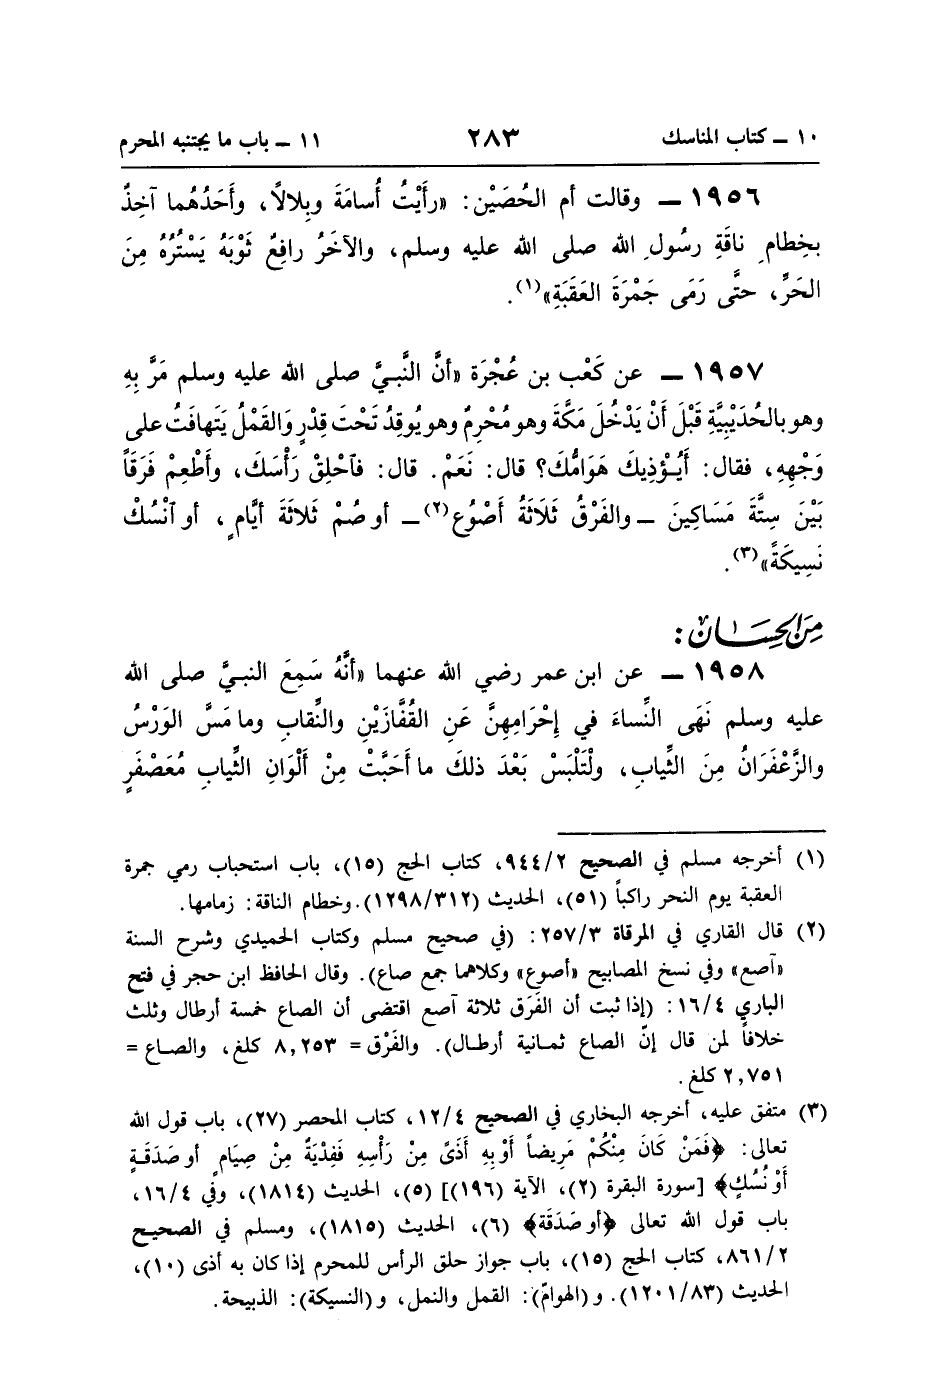 ١٠ ــ كتاب المناسك ٢٨٣ ١١ ــ باب ما يجتنبه المحرم
١٩٥٦ ــ وقالت أم الحُصَيْن: «رأَيْتُ أُسامَةَ وبِلالاً، وأَحَدُهُما آخِذٌ
بخِطامِ ناقَةِ رسُولِ الله صلى الله عليه وسلم، والآخَرُ رافِعٌ ثَوْبَهُ يَسْتُرُهُ مِنَ
الحَرِّ، حتَّى رَمَى جَمْرَةَ العَقَبَةِ»(١).
١٩٥٧ ــ عن كَعْب بن عُجْرَة «أنَّ النَّبيَّ صلى الله عليه وسلم مَرَّ بِهِ
وهو بالحُدَيْبِيَّةِ قَبْلَ أَنْ يَدْخُلَ مَكَّةَ وهو مُحْرِمٌ وهو يُوقِدُ تَحْتَ قِدْرٍ وَالقَمْلُ يَتَهافَتُ على
وَجْهِهِ، فقال: أَيُؤْذِيكَ هَوَامُّكَ؟ قال: نَعَمْ. قال: فَاحْلِقْ رَأْسَكَ، وأَطْعِمْ فَرَقَاً
بَيْنَ سِتَّةَ مَسَاكِينَ ــ والفَرْقُ ثَلاَثَةُ أَصْوُع(٢) ــ أو صُمْ ثَلاثَةَ أيَّامٍ، أو آنْسُكْ
نَسِيكَةً»(٣).
مِنَ الحِسَان:
١٩٥٨ ــ عن ابن عمر رضي الله عنهما «أنَّهُ سَمِعَ النبيَّ صلى الله
عليه وسلم نَهَى النِّساءَ في إِحْرَامِهِنَّ عَنِ القُفَّازَيْنِ والنِّقابِ وما مَسَّ الوَرْسُ
والزَّعْفَرَانُ مِنَ الثِّيابِ، ولْتَلْبَسْ بَعْدَ ذلكَ ما أَحَبَّتْ مِنْ أَلْوَانِ الثِّيابِ مُعَصْفَرٍ
(١) أخرجه مسلم في الصحيح ٩٤٤/٢، كتاب الحج (١٥)، باب استحباب رمي جمرة
العقبة يوم النحر راكباً (٥١)، الحديث (١٢٩٨/٣١٢). وخطام الناقة: زمامها.
(٢) قال القاري في المرقاة ٢٥٧/٣: (في صحيح مسلم وكتاب الحميدي وشرح السنة
«آصع» وفي نسخ المصابيح «أصوع» وكلاهما جمع صاع). وقال الحافظ ابن حجر في فتح
الباري ١٦/٤: (إذا ثبت أن الفَرَق ثلاثة آصع اقتضى أن الصاع خمسة أرطال وثلث
خلافاً لمن قال إنّ الصاع ثمانية أرطال). والفَرْق = ٨,٢٥٣ كلغ، والصاع =
٢,٧٥١ كلغ.
(٣) متفق عليه، أخرجه البخاري في الصحيح ١٢/٤، كتاب المحصر (٢٧)، باب قول الله
تعالى: ﴿فَمَنْ كَانَ مِنْكُمْ مَرِيضاً أَوْ بِهِ أَذَىً مِنْ رَأْسِهِ فَفِدْيَةٌ مِنْ صِيَامٍ أو صَدَقَةٍ
أَوْ نُسُكٍ﴾ [سورة البقرة (٢)، الآية (١٩٦)] (٥)، الحديث (١٨١٤)، وفي ١٦/٤،
باب قول الله تعالى ﴿أو صَدَقَة﴾ (٦)، الحديث (١٨١٥)، ومسلم في الصحيح
٨٦١/٢، كتاب الحج (١٥)، باب جواز حلق الرأس للمحرم إذا كان به أذى (١٠)،
الحديث (١٢٠١/٨٣). و (الهوامّ): القمل والنمل، و (النسيكة): الذبيحة.